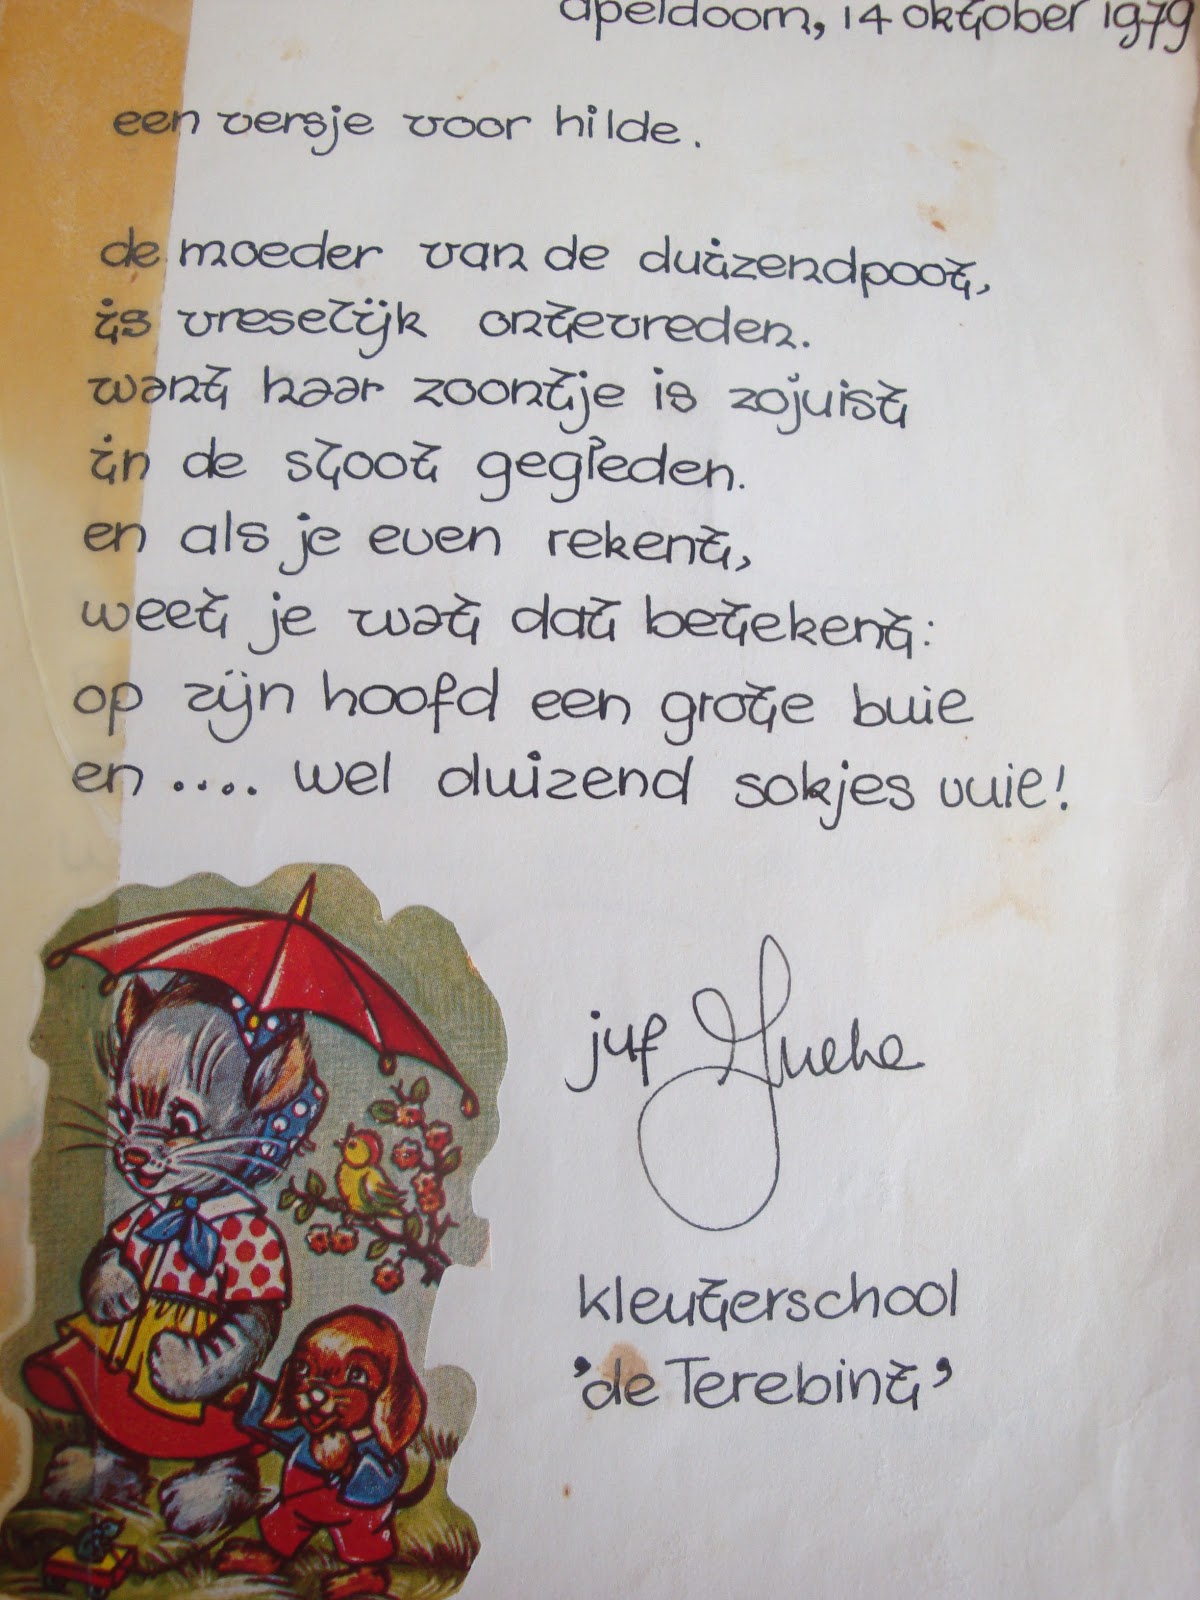 apeldoorn, 14 oktober 1979
een versje voor hilde.
de moeder van de duizendpoot,
is vreselijk ontevreden.
want haar zoontje is zojuist
in de sloot gegleden.
en als je even rekent,
weet je wat dat betekent:
op zijn hoofd een grote buie
en .... wel duizend sokjes vuie!
juf
kleuterschool
'de Terebint'